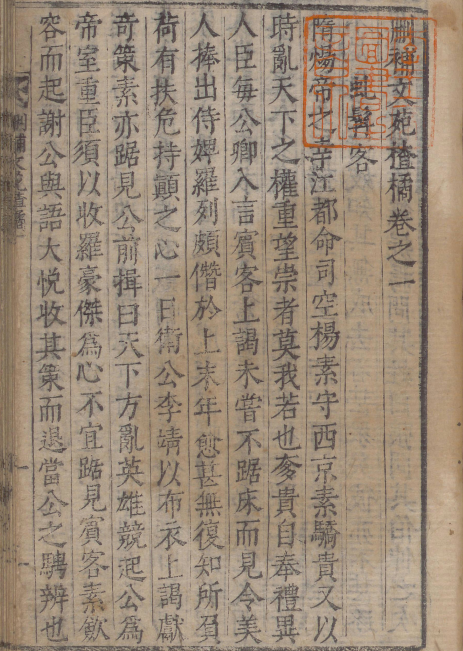 刪補文苑楂橘卷之一
虬髯客
隋煬帝之幸江都命司空楊素守西京素驕貴又以
時亂天下之權重望崇者莫我若也奓貴自奉禮異
人臣每公卿入言賓客上謁未嘗不踞床而見令美
人捧出侍婢羅列頗僭於上末年愈甚無復知所負
荷有扶危持顚之心一日衛公李靖以布衣上謁獻
奇策素亦踞見公前揖曰天下方亂英雄競起公爲
帝室重臣須以收羅豪傑爲心不宜踞見賓客素斂
容而起謝公與語大悅收其策而退當公之騁辨也